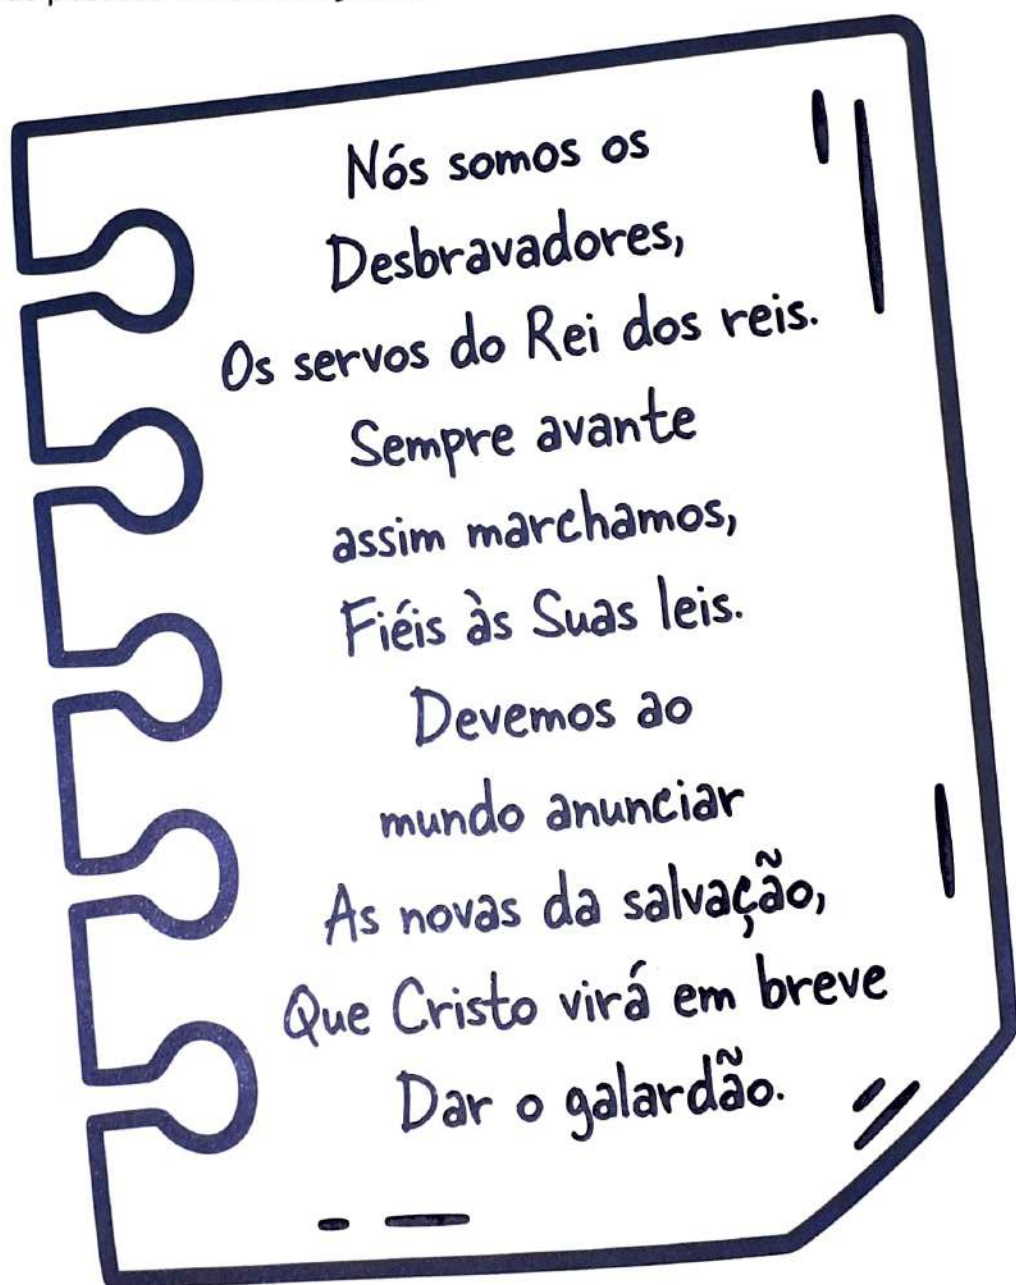 Nós somos os
Desbravadores,
Os servos do Rei dos reis.
Sempre avante
assim marchamos,
Fiéis às Suas leis.
Devemos ao
mundo anunciar
As novas da salvação,
Que Cristo virá em breve
Dar o galardão.